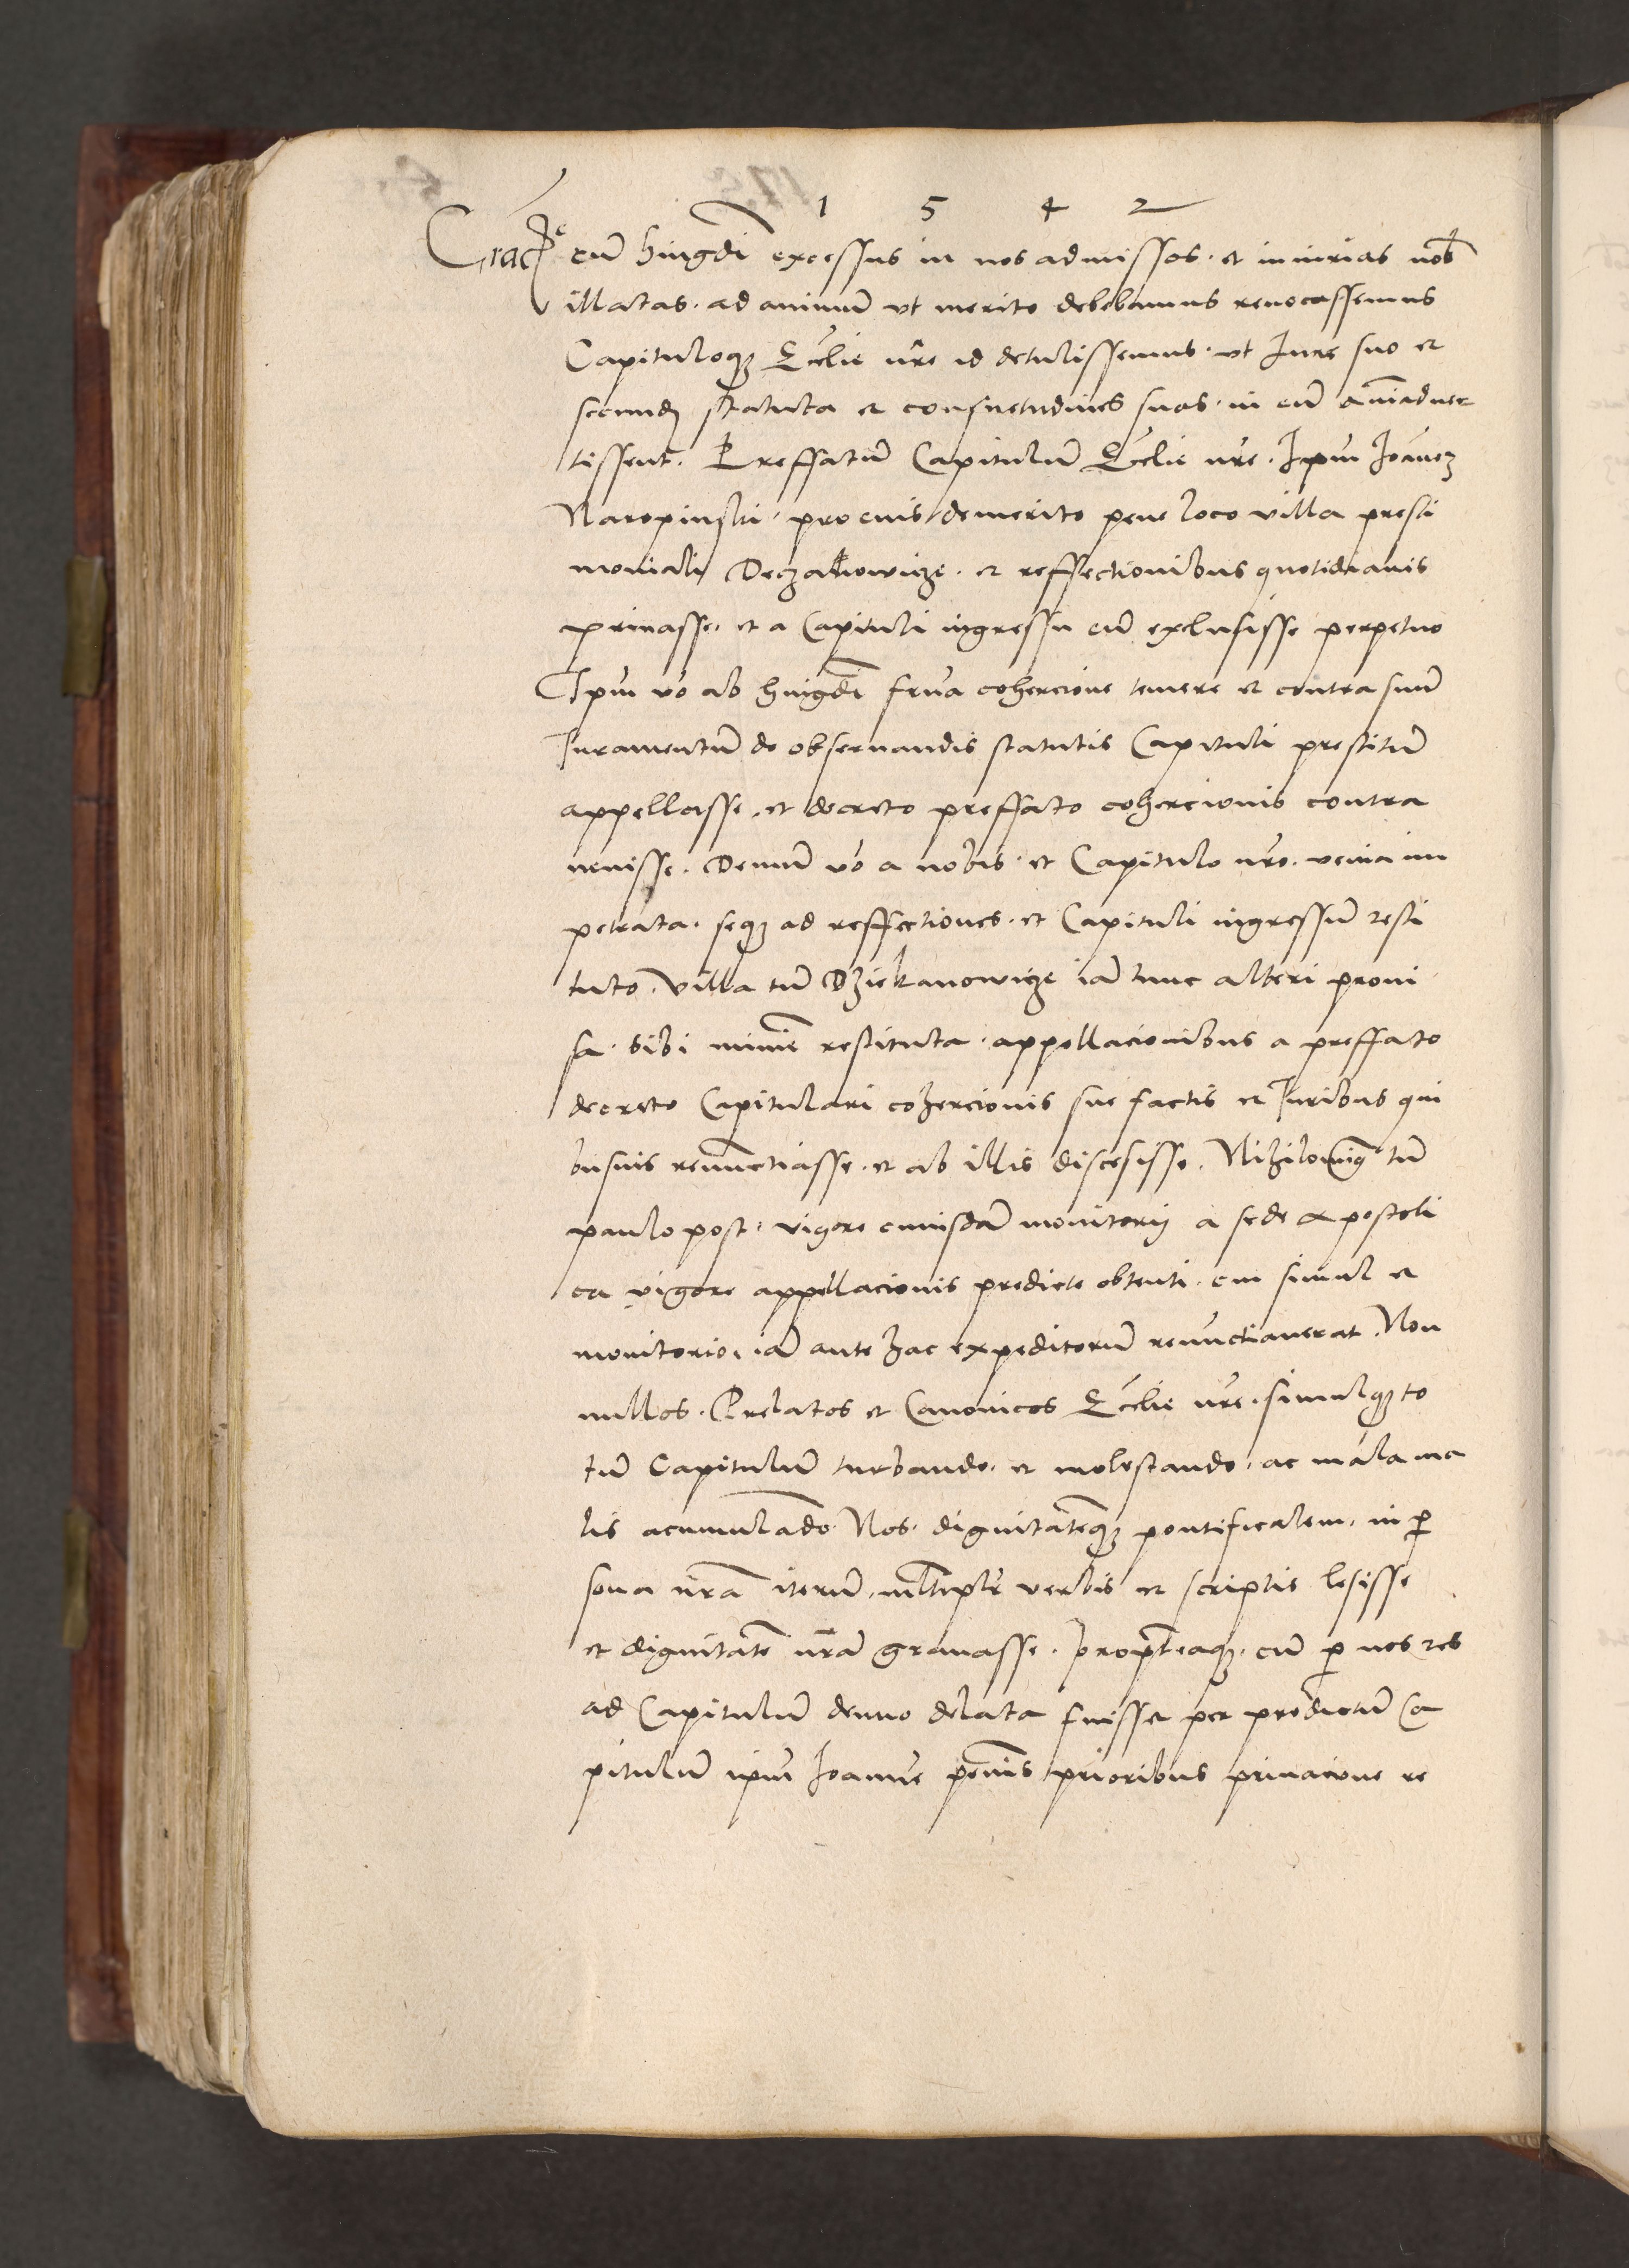 1 5 4 2
Crac͞e
cu͞ huiu͞g͞di excessus in nos admissos · et iniurias nob͞
illatas · ad animu͞ vt merito debebamus reuocassemus
Capituloqz Eccl͞ie nr͞e id detulissemus · vt Iure suo et
secund͞ statuta et consuetudines suas · in eu͞ ani͞aduer
tissent · Preffatu͞ Capitulu͞ Eccl͞ie nr͞e · Ip͞um Ioa͞nez
Naropinski · pro eius demerito pene loco villa presti
moniali Deczanowicze · et reffectionibus quotidianis
priuasse · et a Capituli ingressu eu͞ exclusisse perpetuo
Ip͞um v͞o ab hui͞g͞di fr͞ua cohercione temere et contra suu͞
Iuramentu͞ de obseruandis statutis Capituli prestitu͞
appellasse · et decreto preffato cohercionis contra
uenisse · Demu͞ v͞o a nobis · et Capitulo nr͞o · venia im
petrata · seqz ad reffectiones · et Capituli ingressu͞ resti
tuto · villa tn͞ Dziekanowicze ia͞ tunc alteri proui
sa · sibi mini͞e restituta · appellacionibus a preffato
decreto Capitulari cohercionis sue factis et Iuribus qui
busuis renunctiasse · et ab illis discesisse · Nihilomi͞g tn͞
paulo post · vigore cuiusda͞ monitorij a sede apostoli
ca vigore appellacionis predicte obtenti · cui simul et
monitorio · ia͞ ante hac expeditoru͞ renu͞ctiauerat · Non
nullos · Prelatos et Canonicos Eccl͞ie nr͞e · simulqz to
tu͞ Capitulu͞ turbando · et molestando · ac mala ma
lis acumula͞do · Nos · dignitate͞qz pontificalem · in p͞
sona nr͞a iteru͞ · ml͞tiplr͞ verbis et scriptis lesisse
et dignitate͞ nr͞a͞ grauasse · Propt͞eaqz · cu͞ p͞ nos res
ad Capitulu͞ denuo delata fuisset per predictu͞ Ca
pitulu͞ ip͞um Ioanne͞ peni͞s prioribus priuacione re